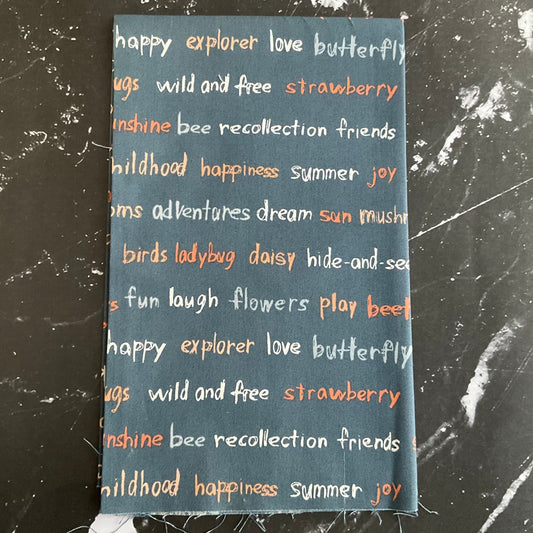 happy explorer love butterfly
ugs wild and free strawberry
nshine bee recollection friends
hildhood happiness summer joy
oms adventures dream sun mushr
birds ladybug daisy hide-and-see
s fun laugh flowers play beet
happy explorer love butterfly
ugs wild and free strawberry
nshine bee recollection friends s
hildhood happiness summer joy